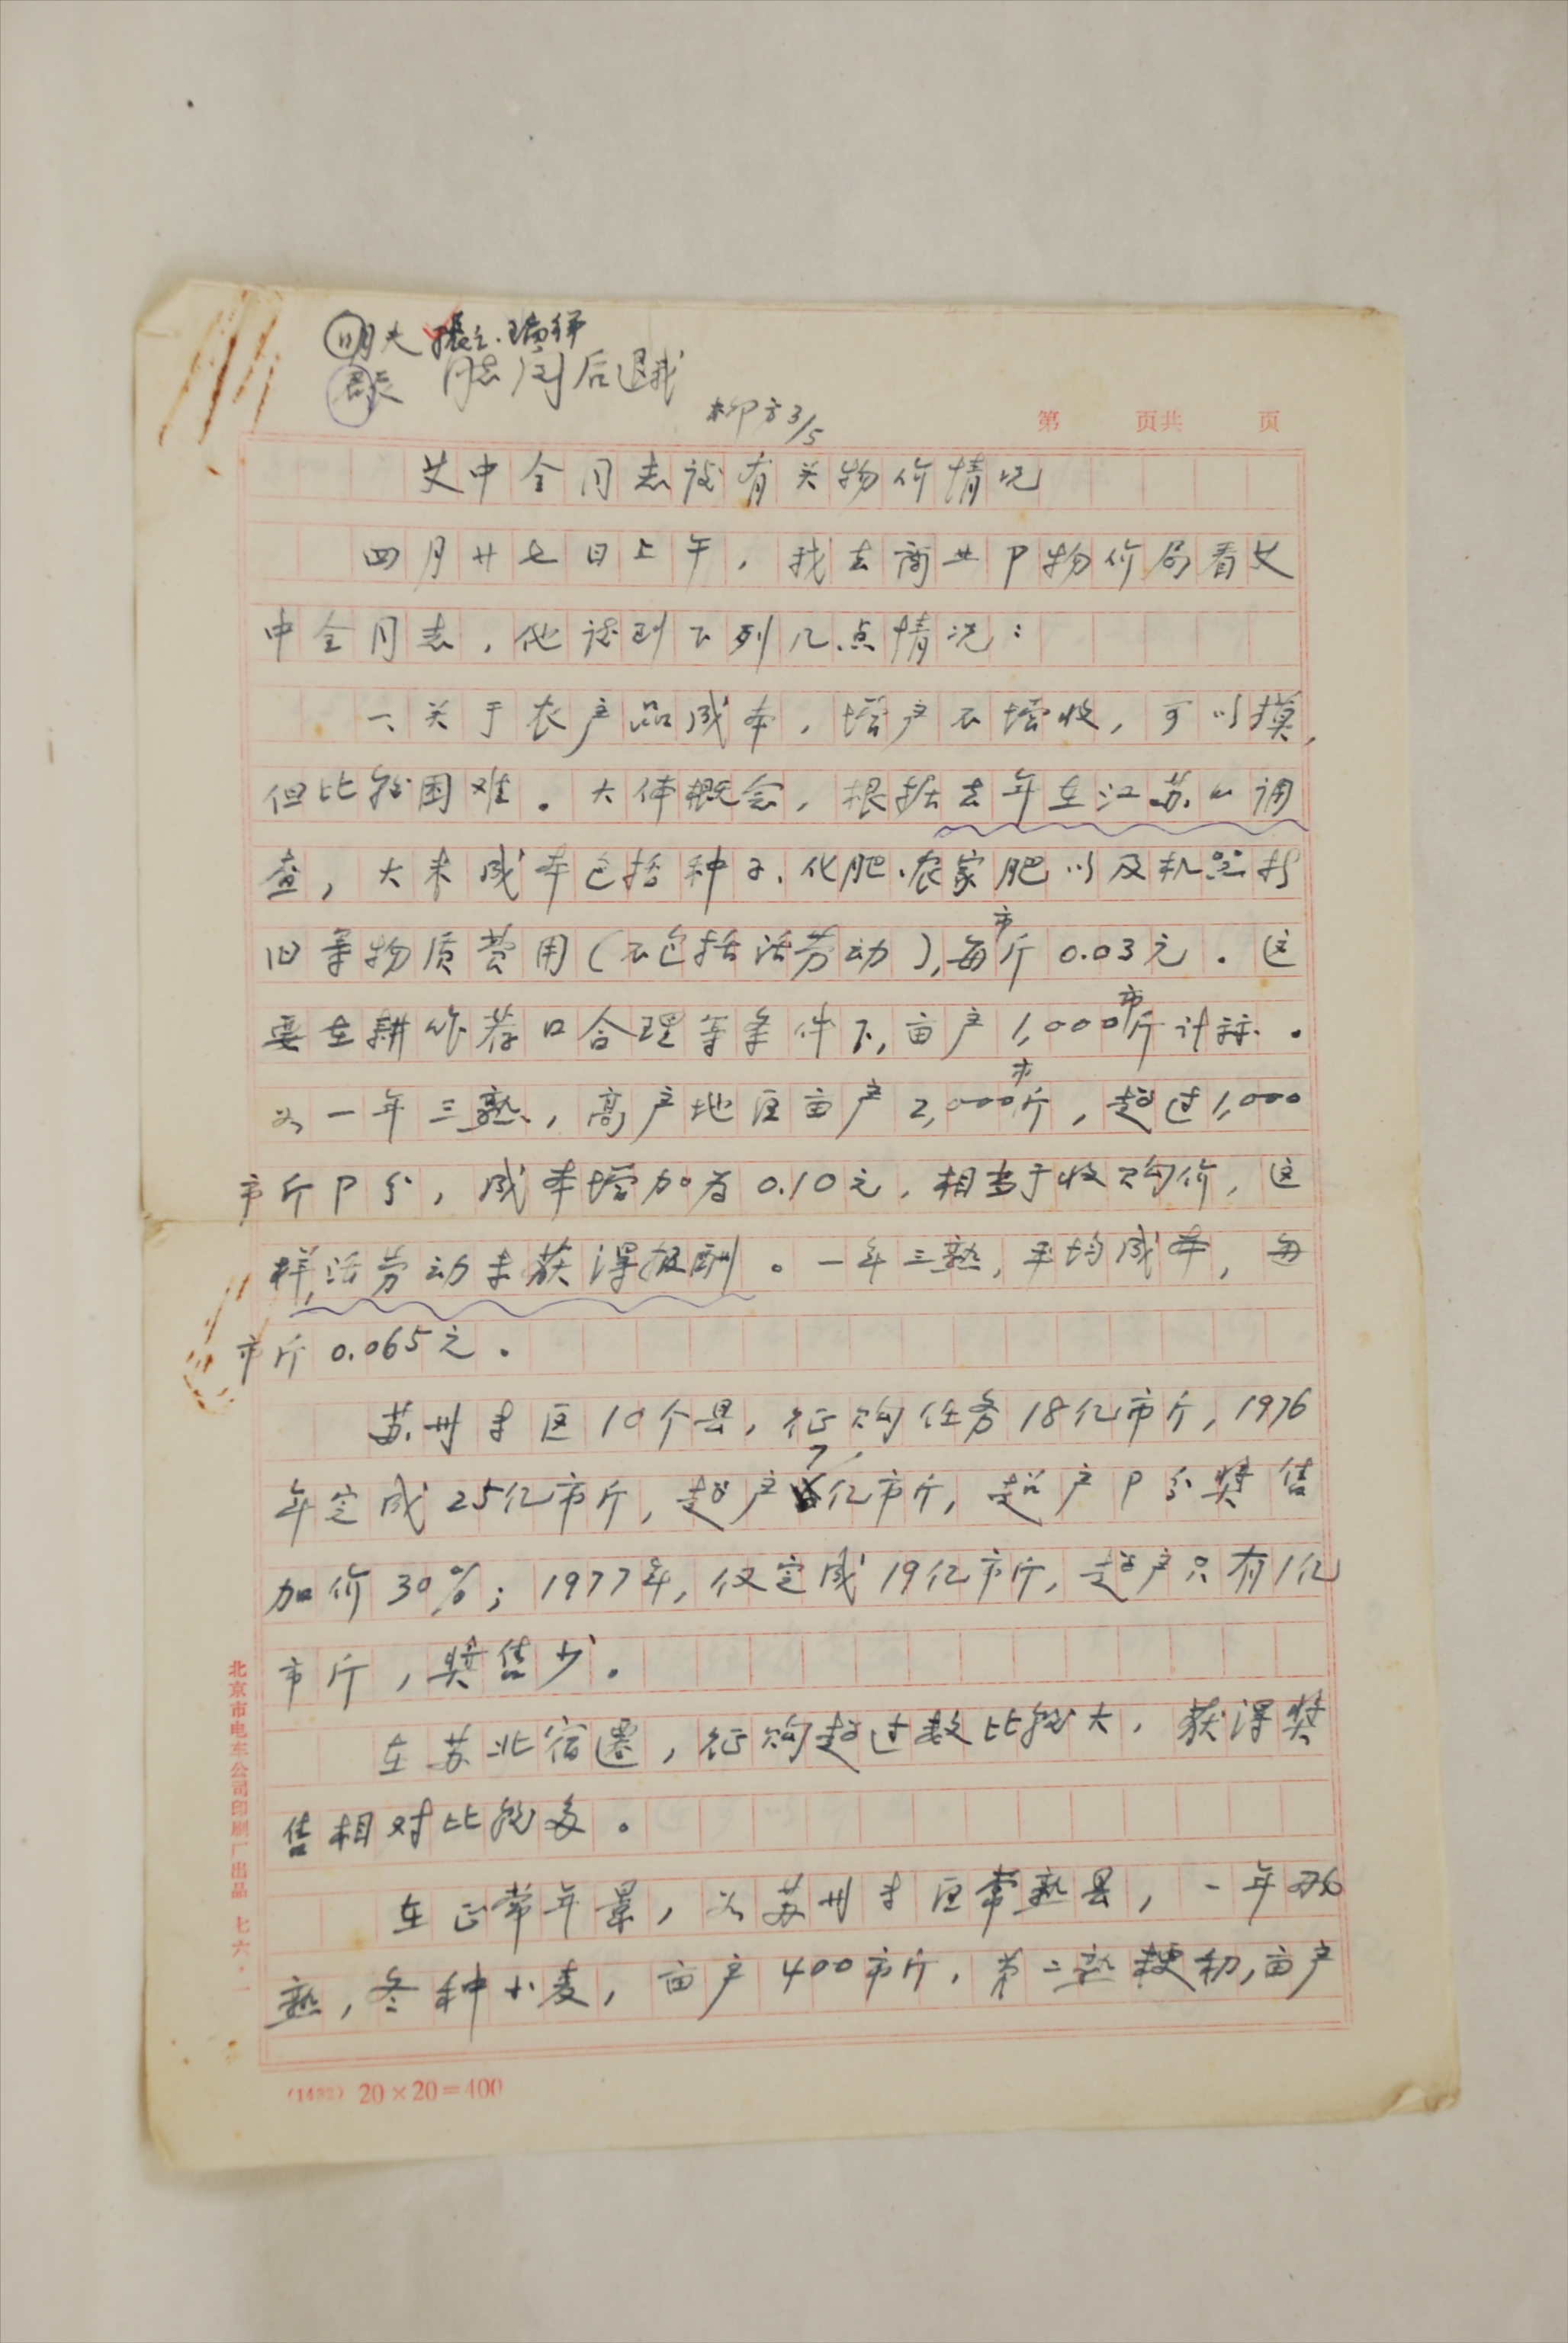 明夫 振之、瑞祥
君辰 同志阅后退我
柳方 3/5
第 页共 页
艾中全同志谈有关物价情况
四月廿七日上午，我去商业卩物价局看艾
中全同志，他谈到下列几点情况：
一、关于农产品成本，增产不增收，可以摸，
但比较困难。大体概念，根据去年在江苏的调
查，大米成本包括种子、化肥、农家肥以及机器折
旧等物质费用（不包括活劳动），每市斤0.03元。这
要在耕作茬口合理等条件下，亩产1,000市斤计祘。
如一年三熟，高产地区亩产2,000市斤，超过1,000
市斤卩分，成本增加为0.10元，相当于收购价，这
样，活劳动未获得报酬。一年三熟，平均成本，每
市斤0.065元。
苏州专区10个县，征购任务18亿市斤，1976
年完成25亿市斤，超产7亿市斤，超产卩分奖售
加价30%；1977年，仅完成19亿市斤，超产只有1亿
市斤，奖售少。
在苏北宿迁，征购超过数比较大，获得奖
售相对比较多。
在正常年景，如苏州专区常熟县，一年两
熟，冬种小麦，亩产400市斤，第二熟粳稻，亩产
北京市电车公司印刷厂出品 七六·一
(1432) 20×20=400